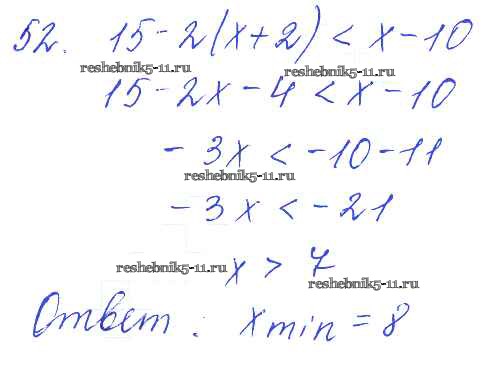 52. 15 - 2(x + 2) < x - 10
reshebnik5-11.ru reshebnik5-11.ru
15 - 2x - 4 < x - 10
- 3x < -10 - 11
reshebnik5-11.ru
- 3x < -21
x > 7
reshebnik5-11.ru reshebnik5-11.ru
Ответ: xmin = 8